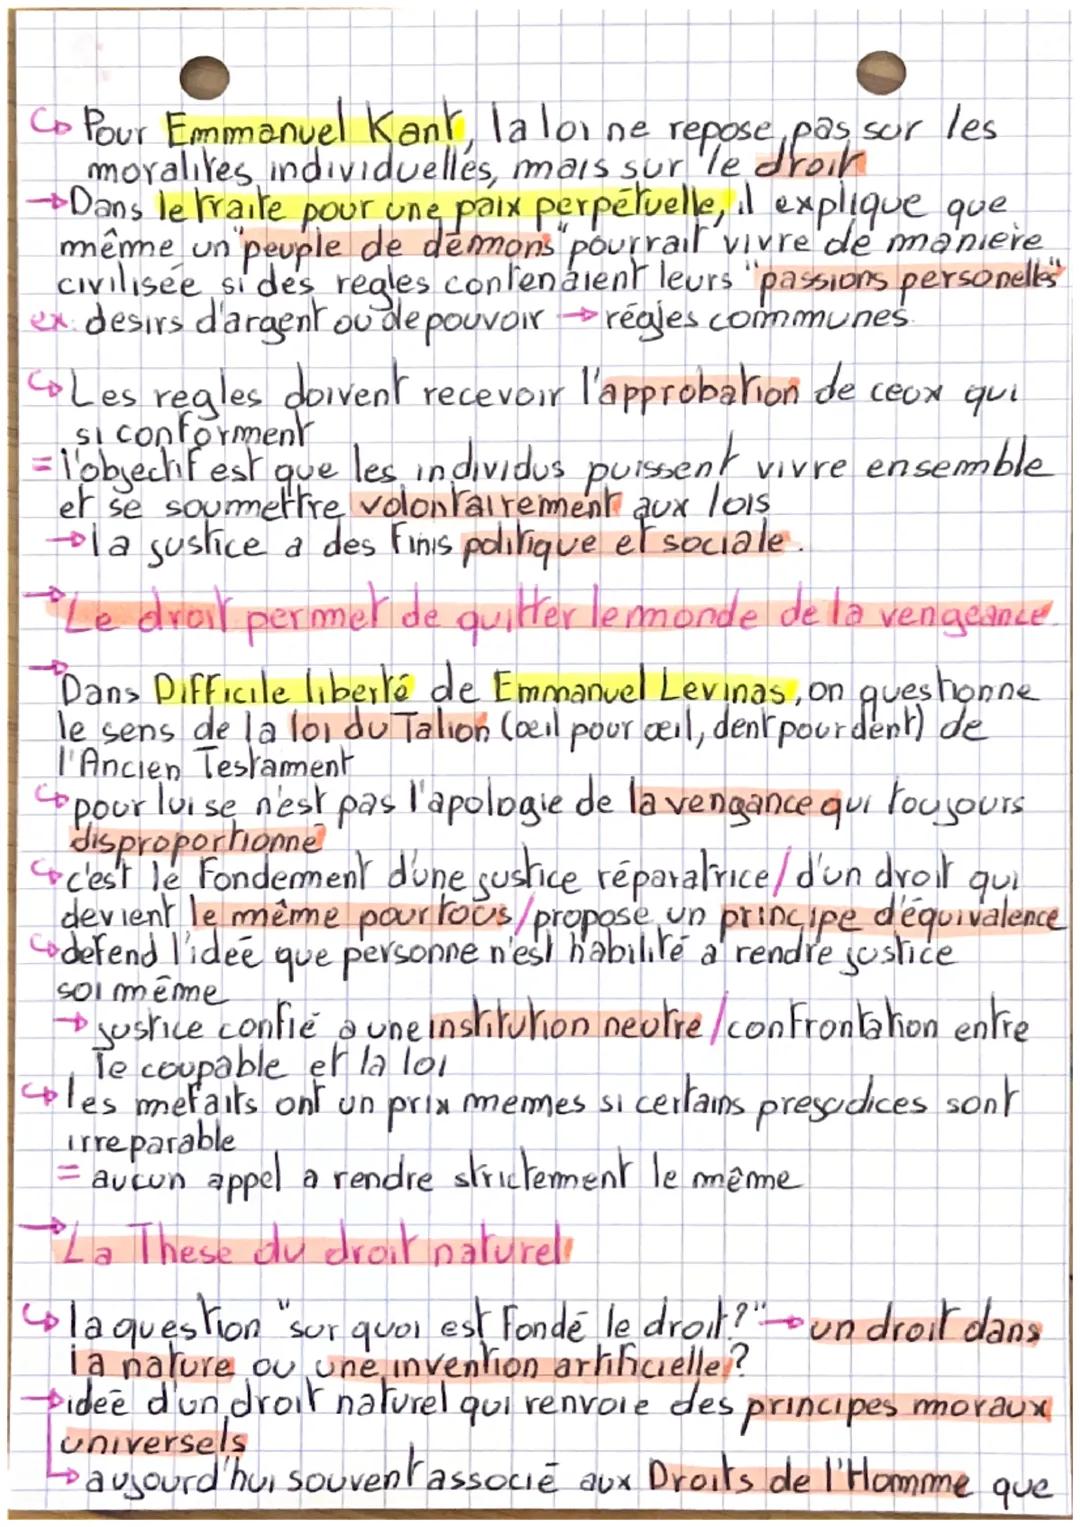 ↳ Pour Emmanuel Kant, la loi ne repose pas sur les
moralites individuelles, mais sur le droit
→ Dans le traite pour une paix perpétuelle, il explique que
même un "peuple de démons" pourrait vivre de maniere
civilisée si des regles contenaient leurs "passions personelles"
ex: desirs d'argent ou de pouvoir → régles communes.
↳ Les regles doivent recevoir l'approbation de ceux qui
si conforment
= l'objectif est que les individus puissent vivre ensemble
et se soumettre volontairement aux lois
→ la justice a des finis politique et sociale.
→ Le droit permet de quitter le monde de la vengeance.
→ Dans Difficile liberté de Emmanuel Levinas, on questionne
le sens de la loi du Talion (œil pour œil, dent pour dent) de
l'Ancien Testament
↳ pour lui se n'est pas l'apologie de la vengance qui toujours
disproportionné
↳ c'est le fondement d'une justice réparatrice / d'un droit qui
devient le même pour tous / propose un principe d'équivalence
↳ defend l'ideé que personne n'est habilité a rendre justice
soi même
→ justice confié a une institution neutre / confrontation entre
le coupable et la loi
↳ les mefaits ont un prix memes si certains prejudices sont
irreparable
= aucun appel a rendre strictement le même
→ La These du droit naturel
↳ la question "sur quoi est fondé le droit?" → un droit dans
la nature ou une invention artificielle?
→ ideé d'un droit naturel qui renvoie des principes moraux
universels
↳ aujourd'hui souvent associé aux Droits de l'Homme que